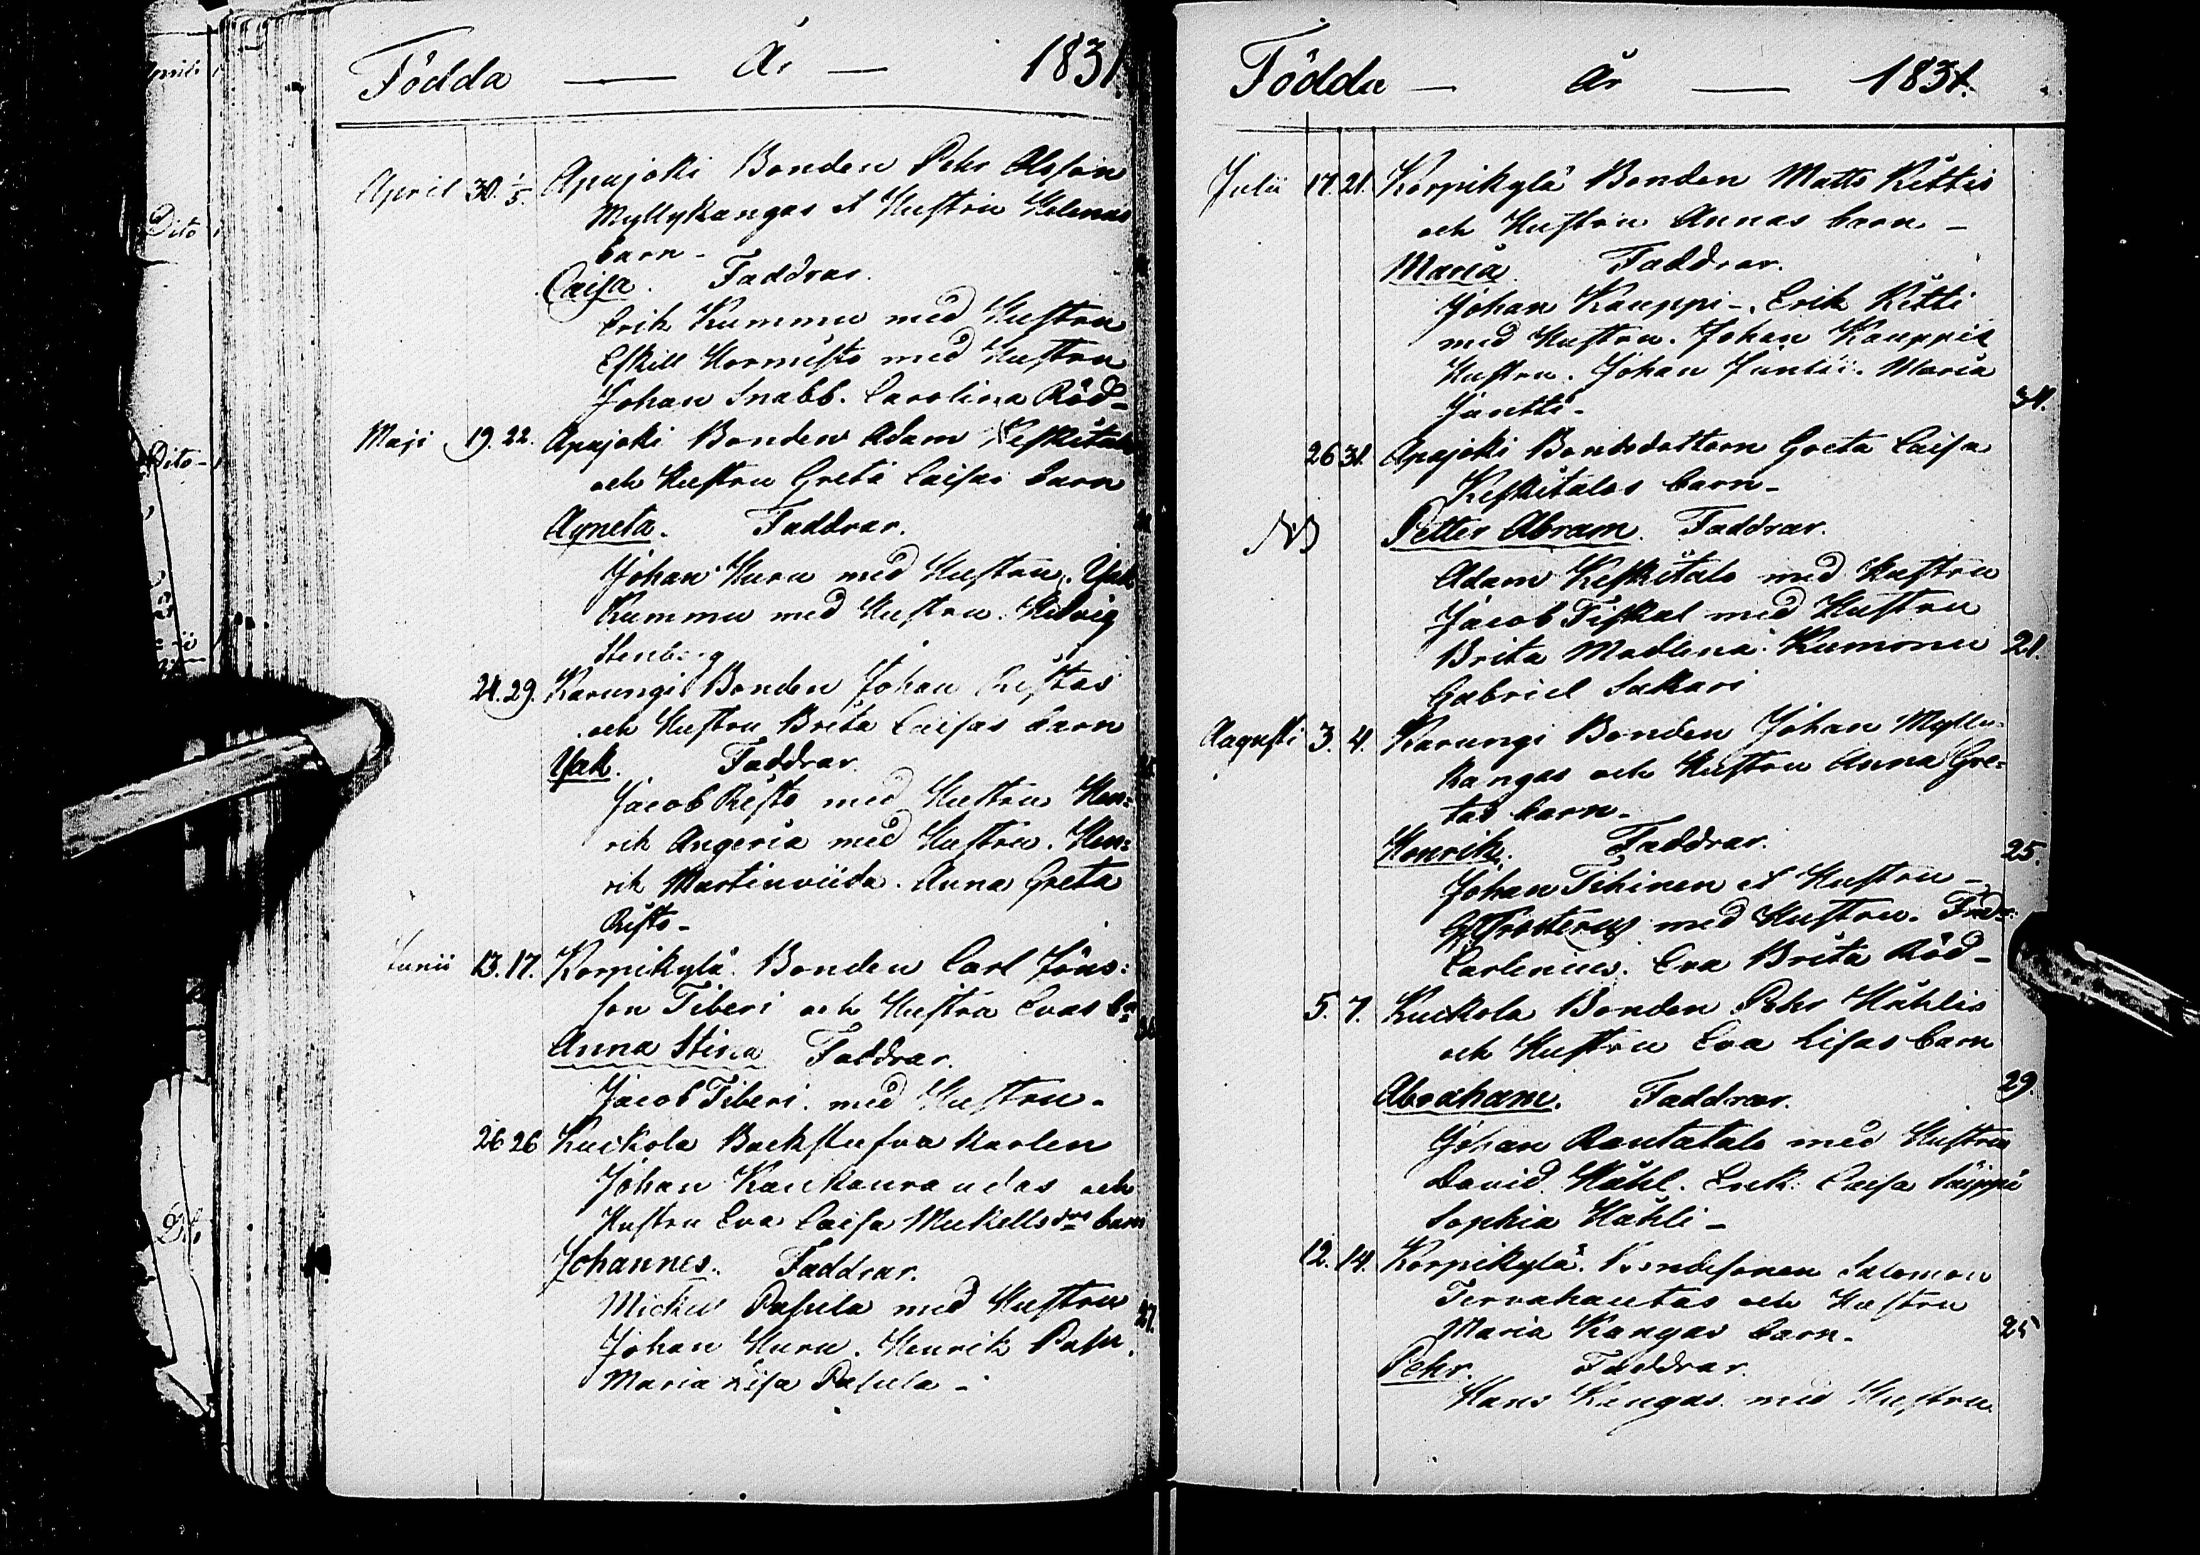 Födda — År — 1831.
April 30. 1/5. Apajoki Bonden Pehr Olsson
Myllykangas et Hustru Helenas
barn –
Caisa. Faddrar.
Erik Kummu med Hustru
Eskill Hormisto med Hustru
Johan Snabb. Carolina Röd–
Maji 19. 22. Apajoki Bonden Adam Keskitalo
och Hustru Greta Caisas barn
Agneta. Faddrar.
Johan Huru med Hustru. Isak
Kummu med Hustru. Hedvig
Stenberg
24. 29. Karungi Bonden Johan Ristos
och Hustru Brita Caisas barn
Isak. Faddrar.
Jacob Risto med Hustru Hen:
rik Angeria med Hustru. Hen:
rik Martinviida. Anna Greta
Risto –
Junii 13. 17. Korpikylä. Bonden Carl Jöns:
son Tiberi och Hustru Evas bn
Anna Stina Faddrar.
Jacob Tiberi. med Hustru –
26 26 Kuckola Backstufva karlen
Johan Kaukoura udas och
Hustru Eva Caisa Mickellsdrs barn
Johannes. Faddrar.
Mickel Pasula med Hustru
Johan Huru. Henrik Pasu.
Maria Lisa Pasula –
Födda — År — 1831.
Julii 17. 21. Korpikylä Bonden Matts Kittis
och Hustru Annas barn –
Maria Faddrar.
Johan Kauppi –. Erik Kitti
med Hustru. Johan Kauppis
Hustru. Johan Juntti. Maria
Juntti –
31.
26 31. Apajoki Bondedottern Greta Caisa
Keskitalos barn –
NB Petter Abram. Faddrar.
Adam Keskitalo med Hustru
Jacob Fiskal med Hustru
Brita Madlena Kummu 21.
Gabriel Sakari
Augusti 3. 4. Karungi Bonden Johan Mylly
kangas och Hustru Anna Gre:
tas barn –
Henrik. Faddrar. 25.
Johan Tihinen et Hustru –
Frosterus med Hustru. Fredr:
Carlenius. Eva Brita Röd–
5. 7. Kuckola Bonden Pehr Hählis
och Hustru Eva Lisas barn
29.
Abraham. Faddrar.
Johan Rautatalo med Hustru
David Hähl. Erik. Caisa
Sophia Hähli –
12. 14. Korpikylä. Bondesonen Salomon
Tervahautas och Hustru
Maria Kangas barn. 25
Pehr. Faddrar.
Hans Kangas med Hustru